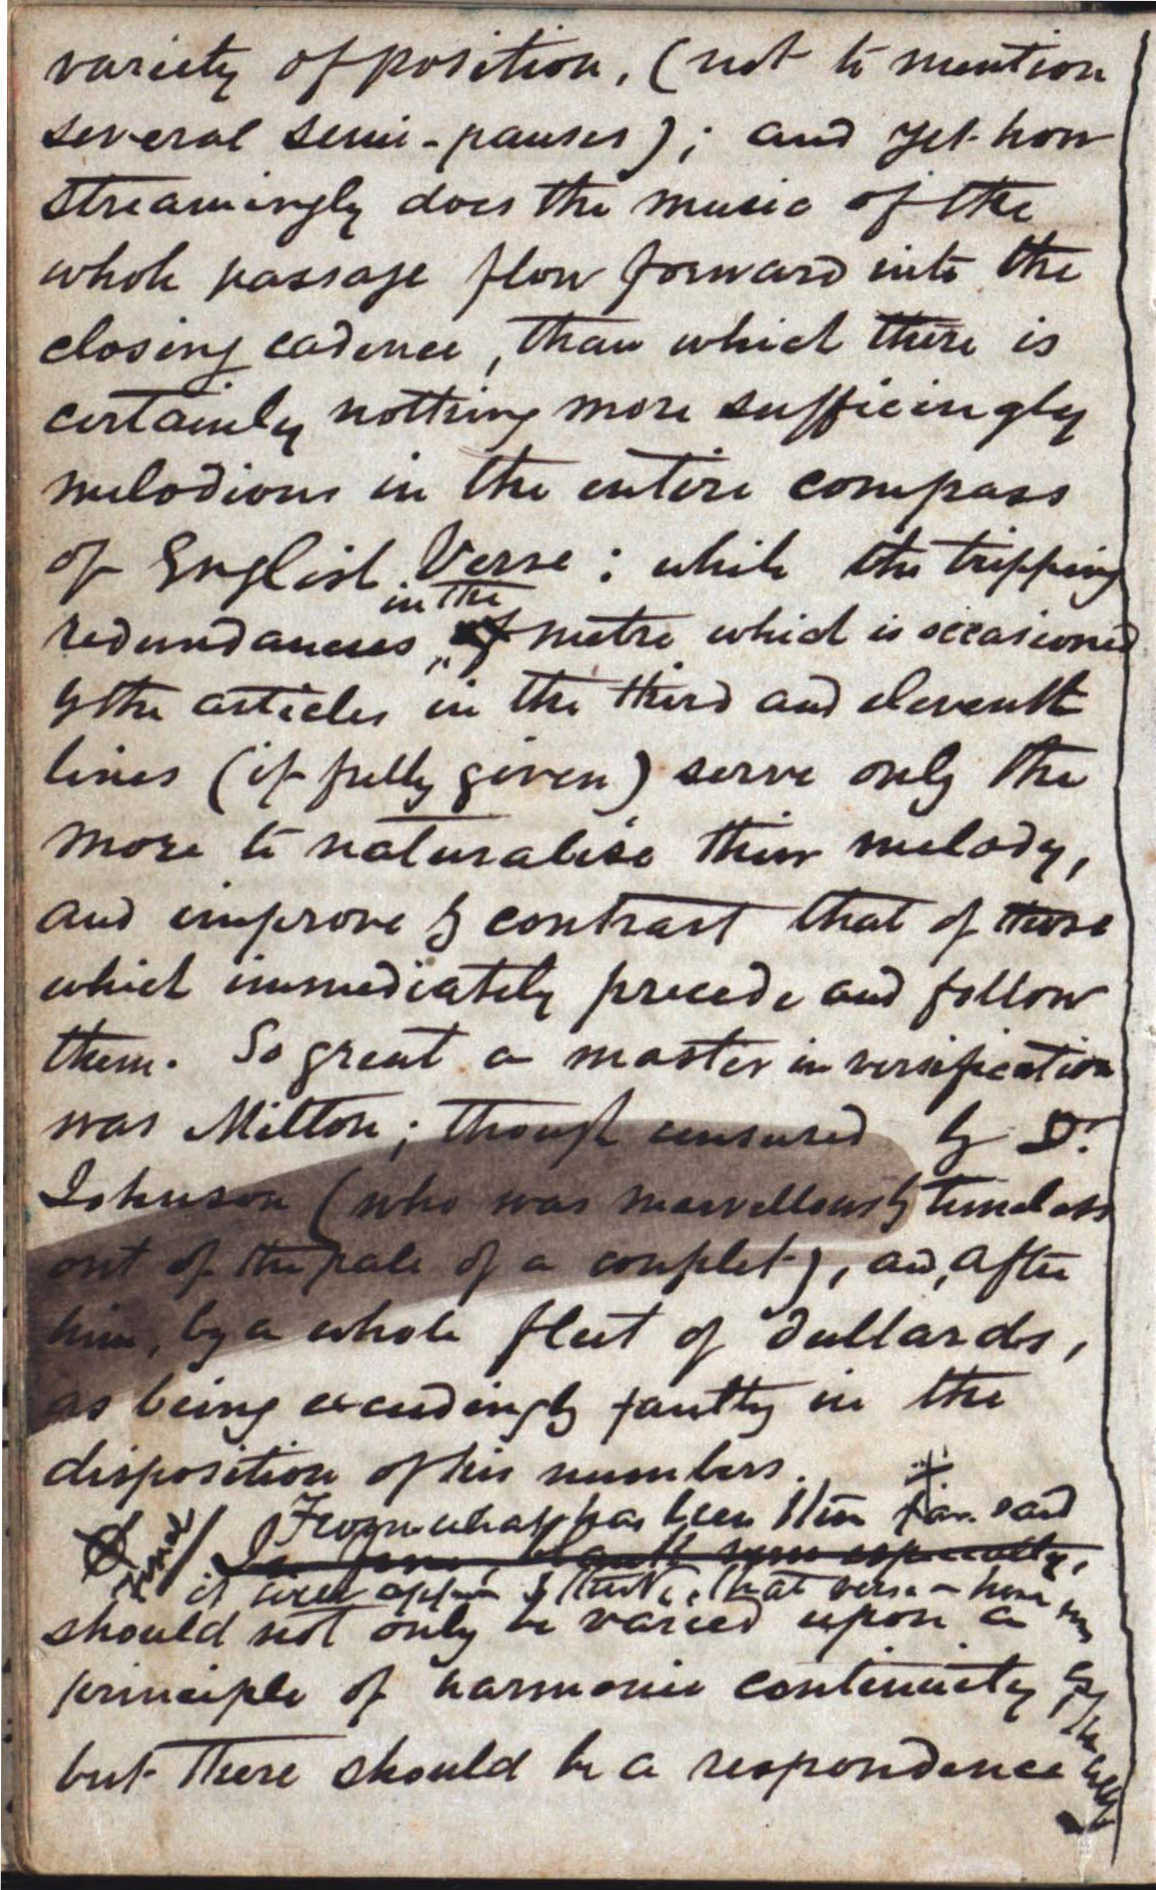 variety of position, (not to mention
several semi-pauses); and yet how
streamingly does the music of the
whole passage flow forward into the
closing cadence, than which there is
certainly nothing more sufficingly
melodious in the entire compass
of English Verse: while the tripping
in the
redundances, of metre which is occasioned
by the articles in the third and eleventh
lines (if fully given) serve only the
more to naturalise their melody,
and improve by contrast that of those
which immediately precede and follow
them. So great a master in versification
was Milton; though censured by Dr.
Johnson (who was marvellously timeless
out of the pale of a couplet), and, after
him, by a whole fleet of dullards,
as being exceedingly faulty in the
disposition of his numbers.
From what has been thus far said
especially,
it will appear I think, that verse
should not only be varied upon a
principle of harmonic continuity
but there should be a respondence